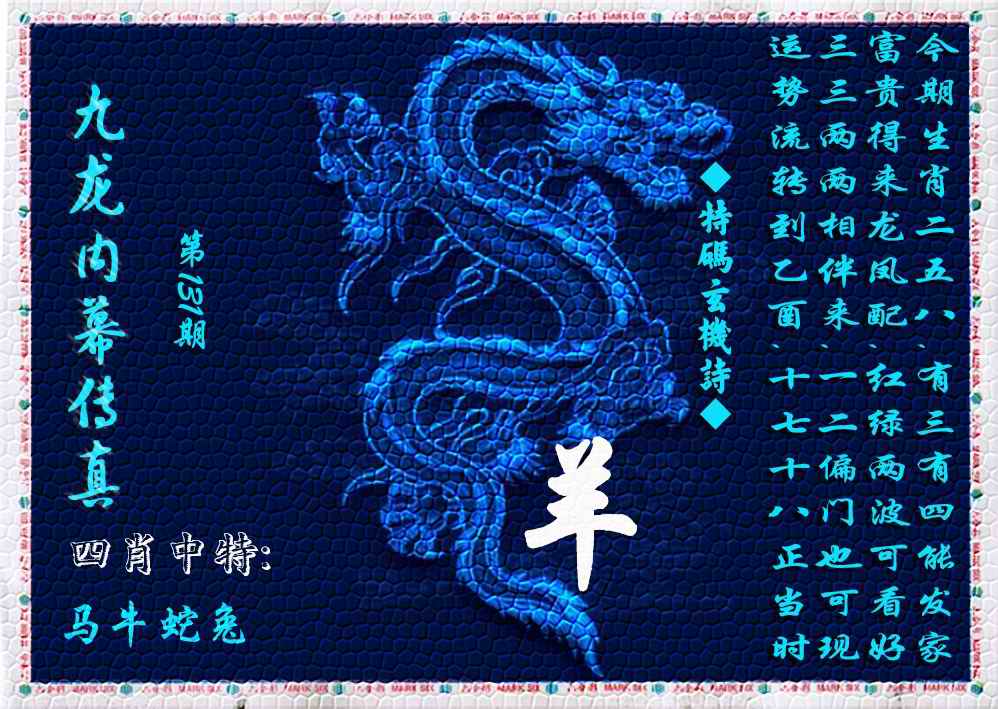 今期生肖二五八、有三有四能发家
富贵得来龙凤配、红绿两波可看好
三三两两相伴来、一二偏门也可现
运势流转到乙酉、十七十八正当时
◆特碼玄機詩◆
九龙内幕传真
第131期
羊
四肖中特:
马牛蛇兔